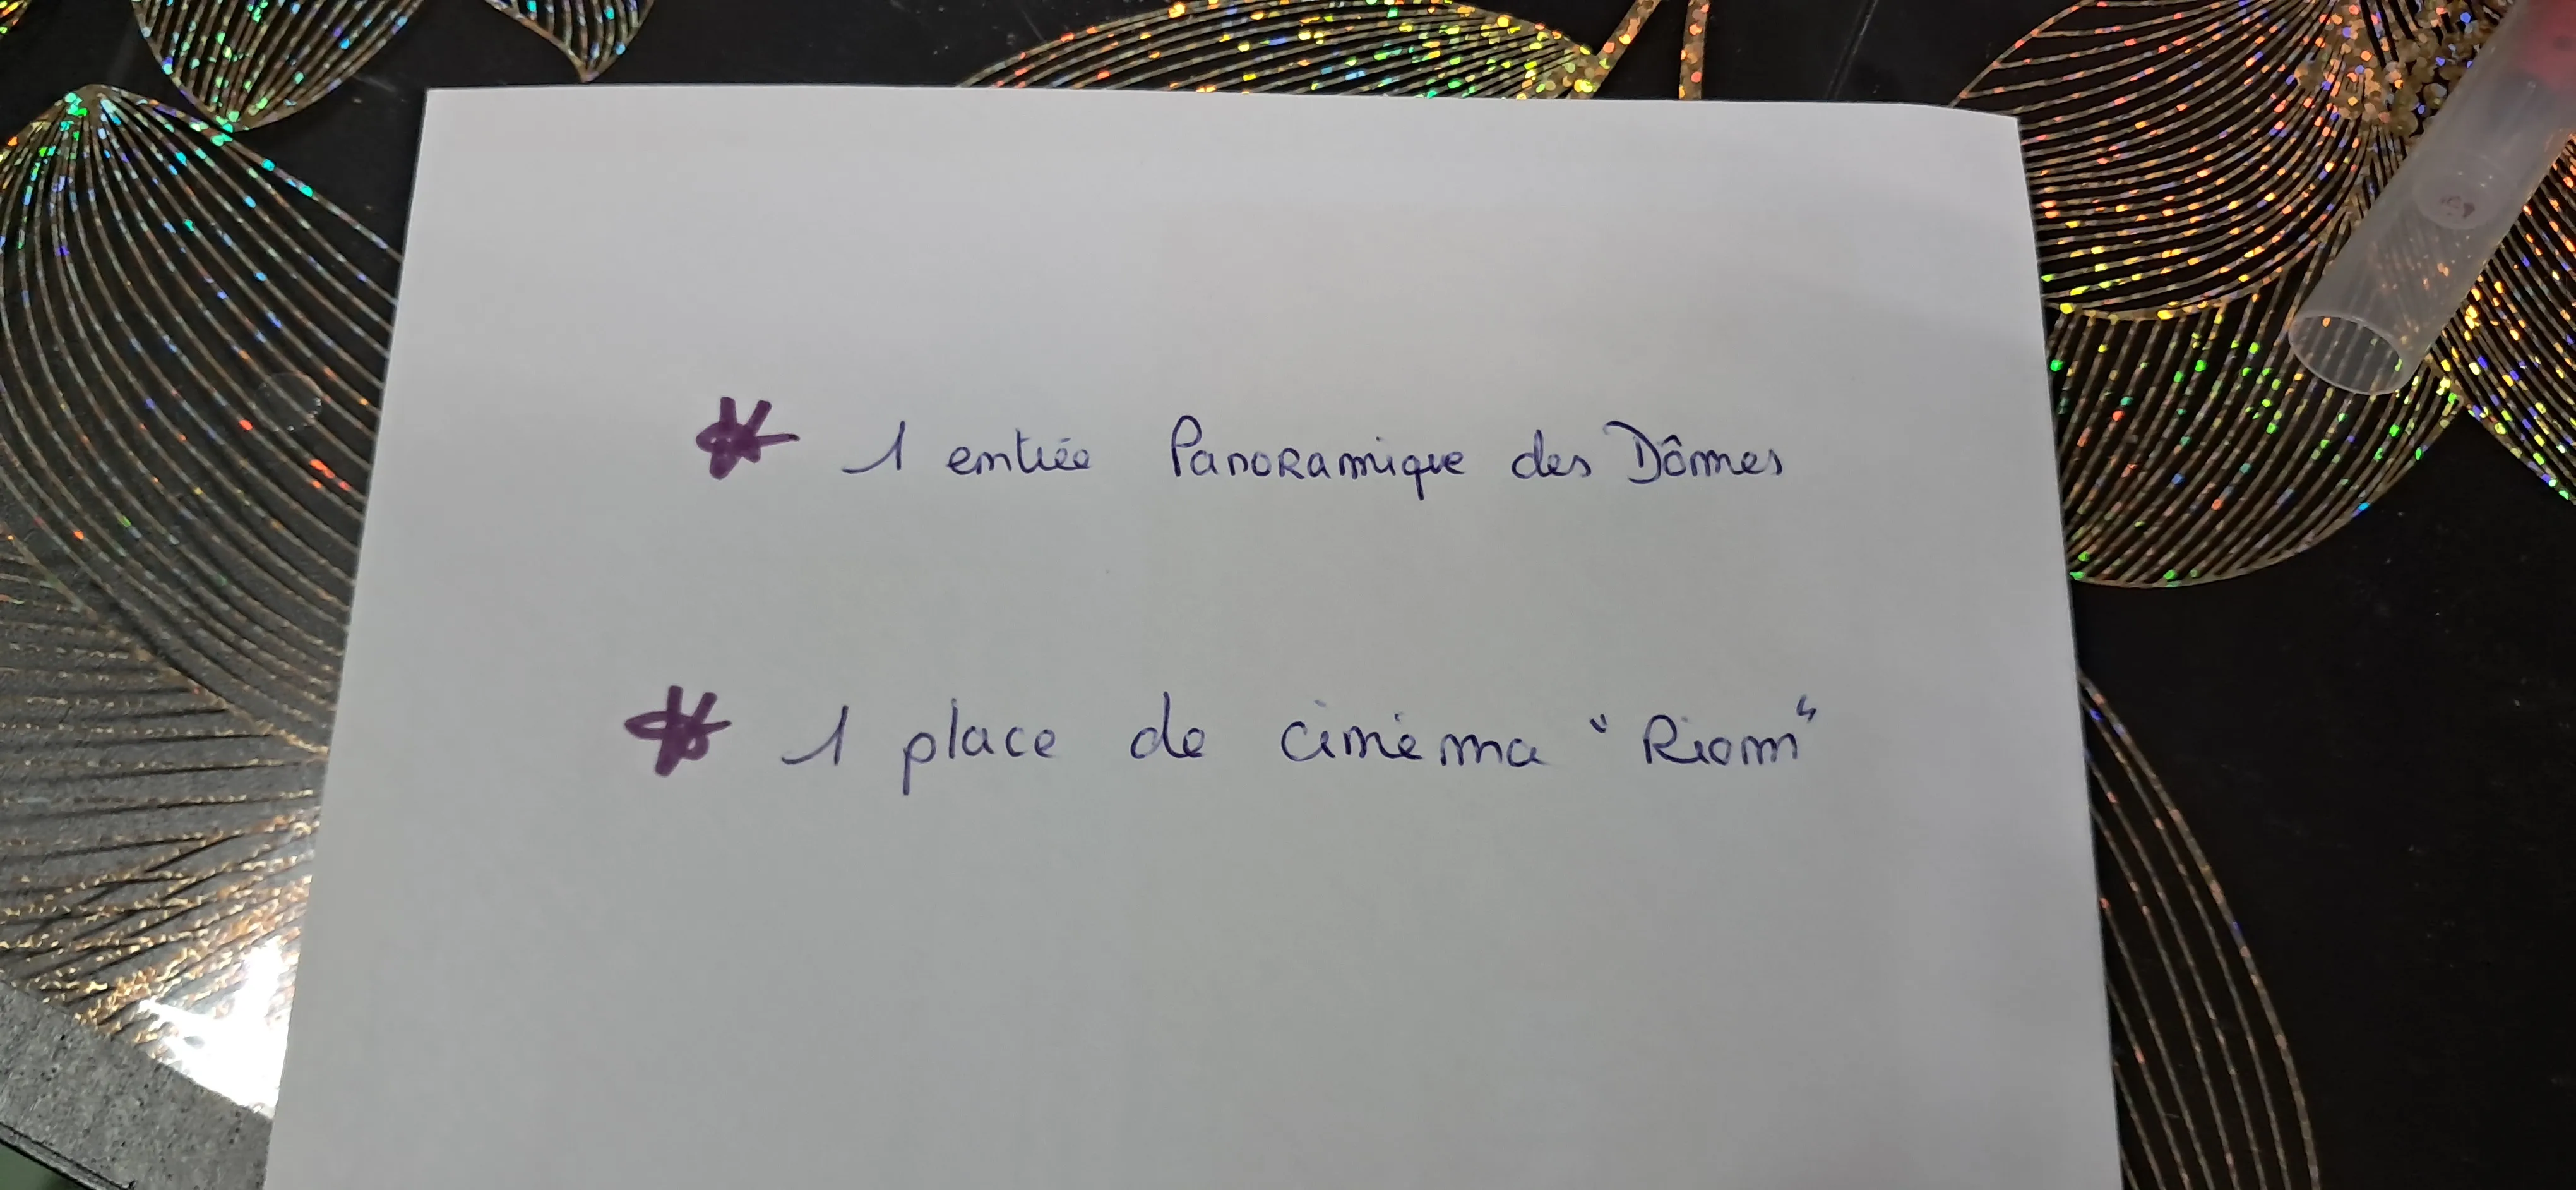 * 1 entrée Panoramique des Dômes
* 1 place de cinéma "Riom"